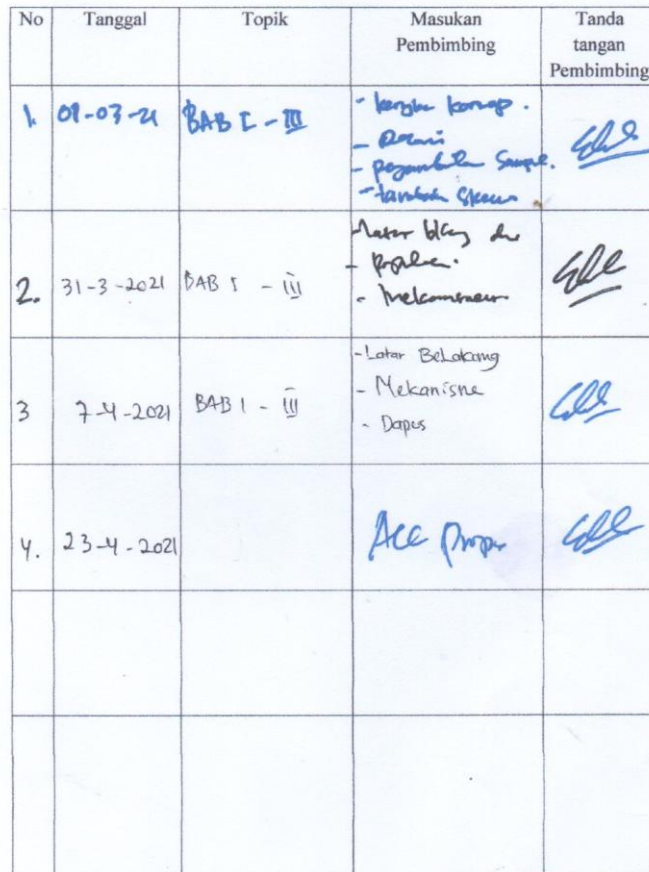 No Tanggal Topik Masukan Pembimbing Tanda tangan Pembimbing
1. 01-03-21 BAB I - III
- 
- 
- pengambilan Sampel.
- tambah
2. 31-3-2021 BAB I - III
- Latar blkg
- Populasi.
- Mekanisme
3 7-4-2021 BAB I - III
- Latar Belakang
- Mekanisme
- Dapus
4. 23-4-2021 Acc Propo